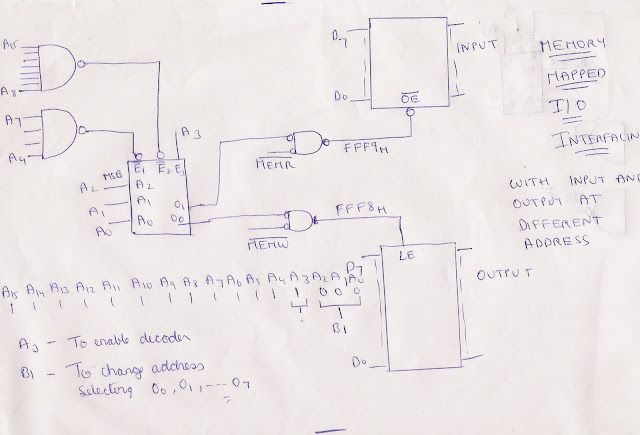 A15
A8
A7
A4
D7
D0
INPUT
OE
MEMORY
MAPPED
I/O
INTERFACIN
WITH INPUT AND
OUTPUT AT
DIFFERENT
ADDRESS
A3
E1 E2 E3
MSB
A2 A2
A1 A1
A0 A0
O1
O0
MEMR
FFF9H
MEMW
FFF8H
LE
D7
D0
OUTPUT
A15 A14 A13 A12 A11 A10 A9 A8 A7 A6 A5 A4 A3 A2 A1 A0
1 1 1 1 1 1 1 1 1 1 1 1 1 0 0 0
B1
A3 - To enable decoder
B1 - To change address
Selecting O0, O1, ---- O7